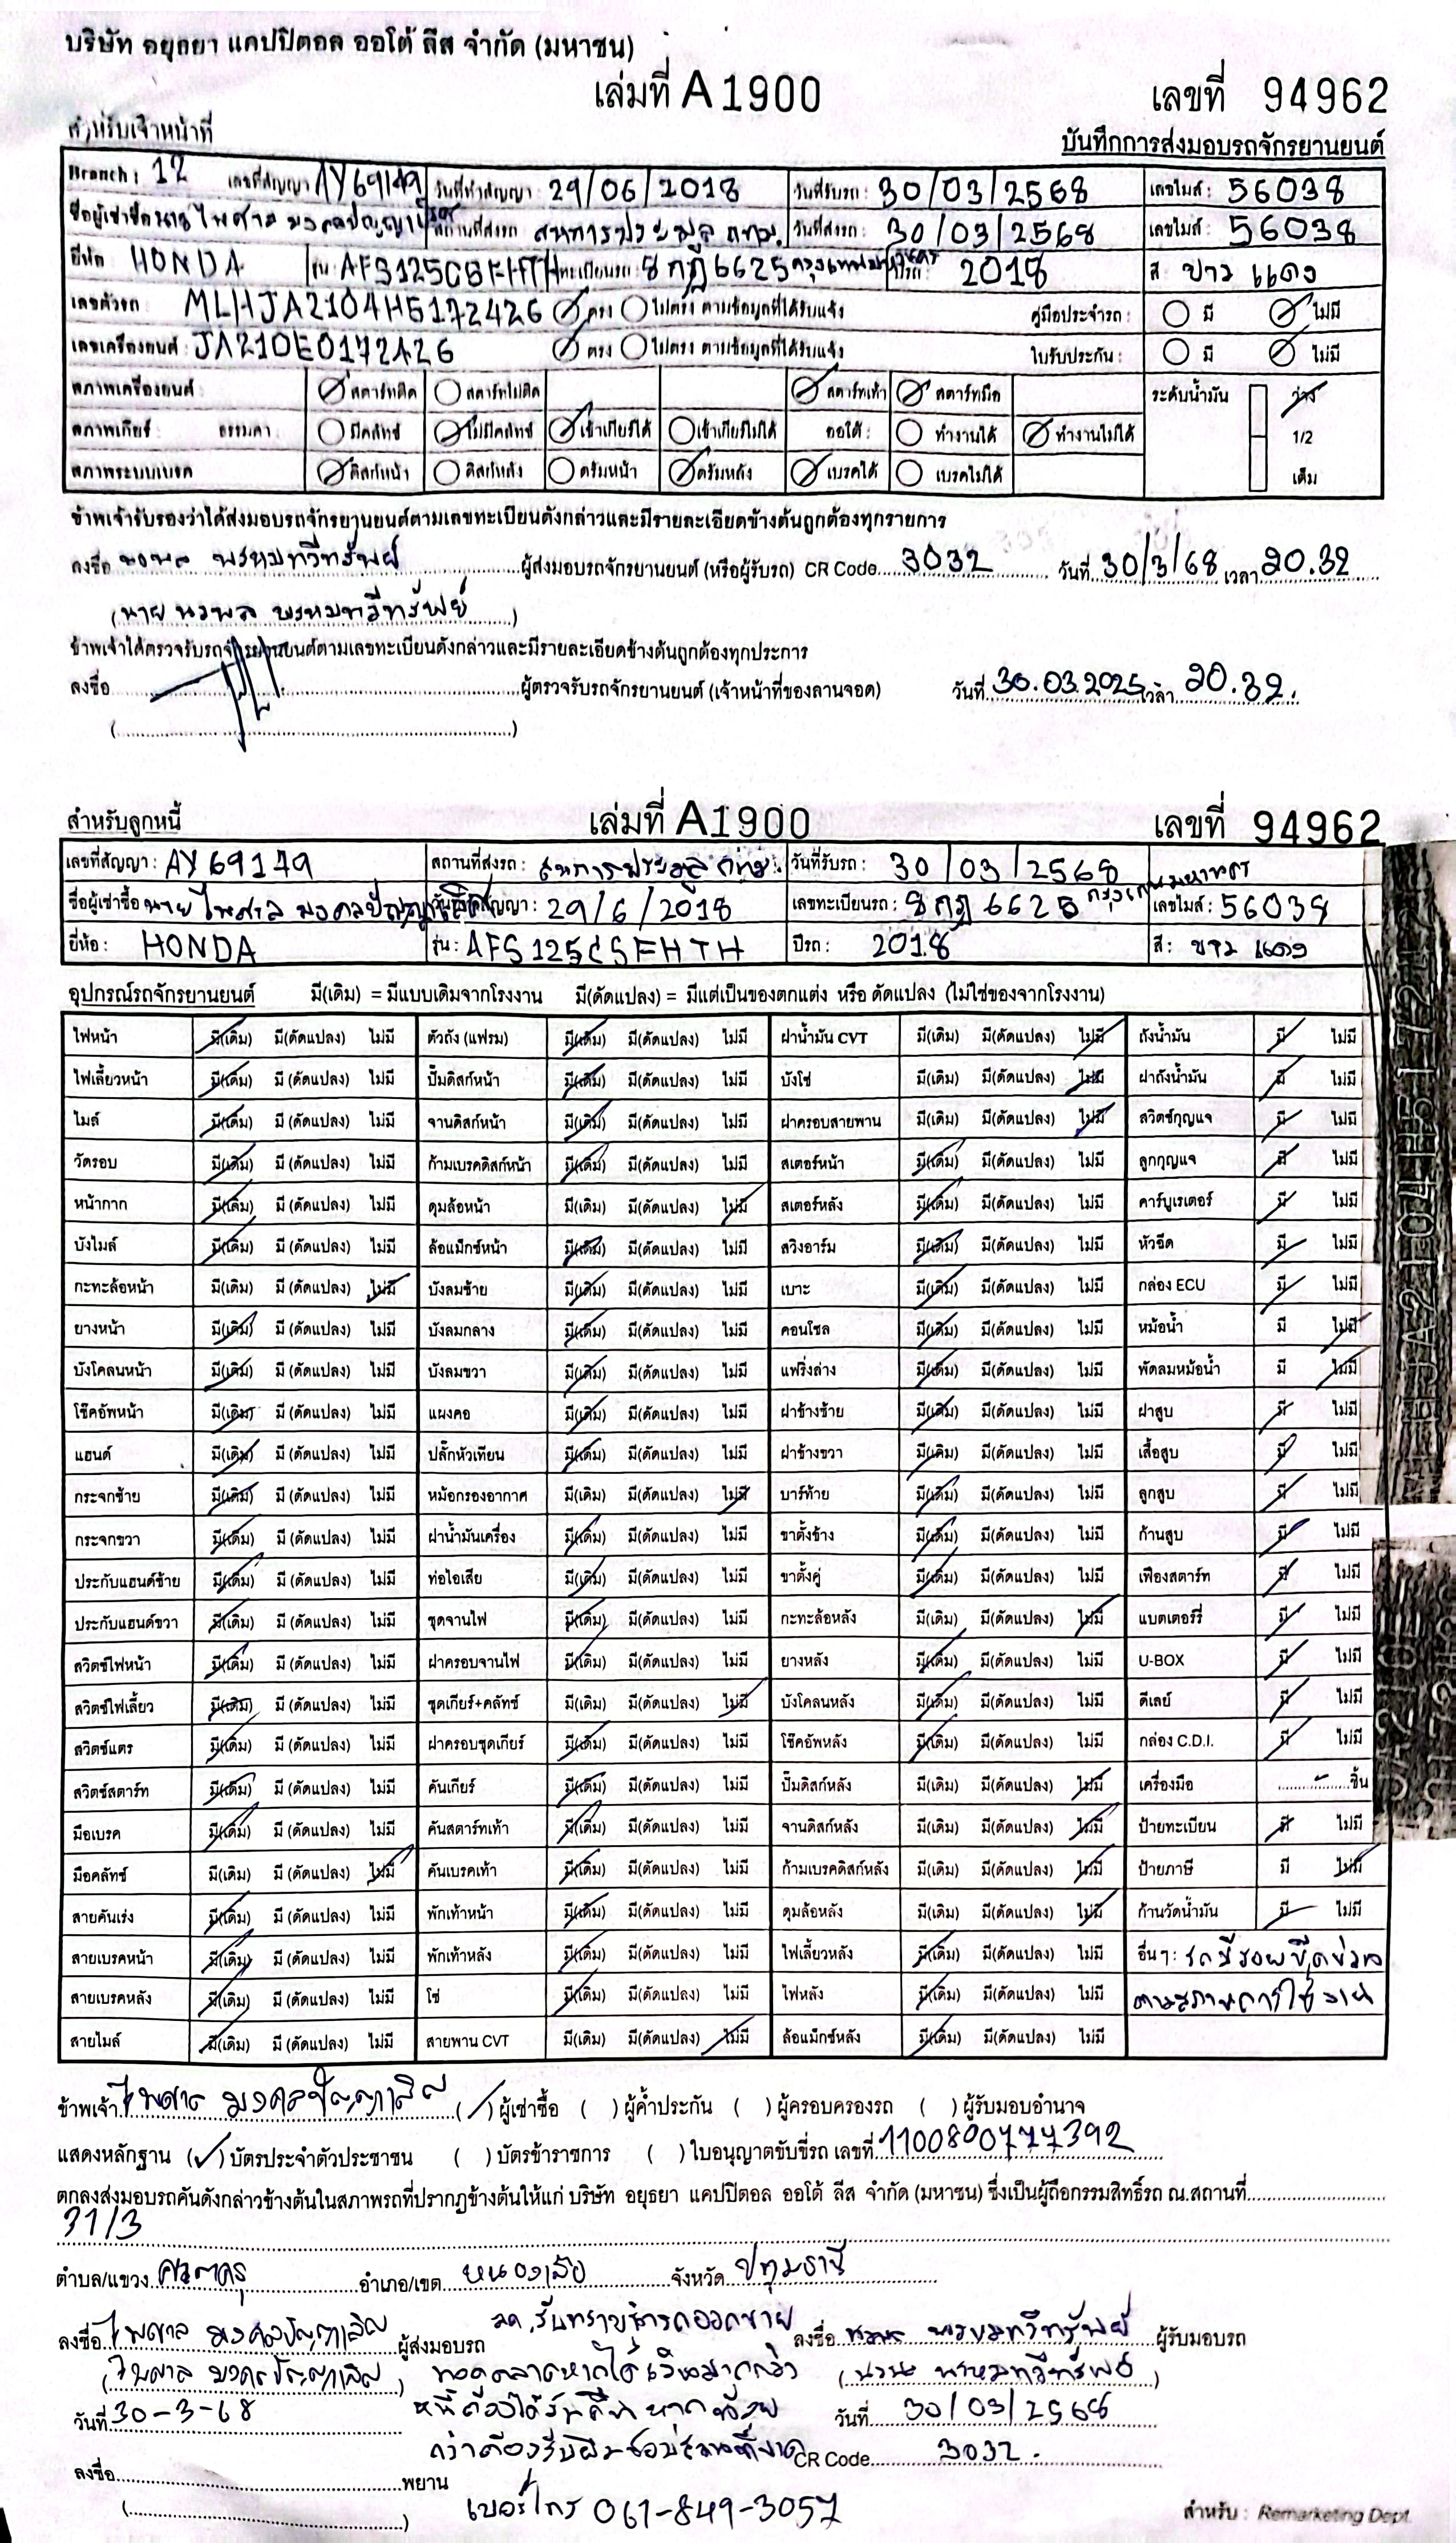 บริษัท อยุธยา แคปปิตอล ออโต้ ลีส จำกัด (มหาชน)
เล่มที่ A1900 เลขที่ 94962
สำหรับเจ้าหน้าที่ บันทึกการส่งมอบรถจักรยานยนต์
Branch : 12 เลขที่สัญญา AY69149 วันที่ทำสัญญา : 29/06/2018 วันที่รับรถ : 30/03/2568 เลขไมล์ : 56038
ชื่อผู้เช่าซื้อ นายไพศาล สถานที่ส่งรถ สหการประมูล กทม. วันที่ส่งรถ : 30/03/2568 เลขไมล์ : 56038
ยี่ห้อ HONDA รุ่น : AFS125CSFHTH ทะเบียนรถ : 8กฎ6625 กรุงเทพมหานคร ปีรถ : 2018 สี : ขาว แดง
เลขตัวรถ MLHJA2104H5172426 ตรง ไม่ตรง ตามข้อมูลที่ได้รับแจ้ง คู่มือประจำรถ : มี ไม่มี
เลขเครื่องยนต์ : JA210E0172426 ตรง ไม่ตรง ตามข้อมูลที่ได้รับแจ้ง ใบรับประกัน : มี ไม่มี
สภาพเครื่องยนต์ : สตาร์ทติด สตาร์ทไม่ติด สตาร์ทเท้า สตาร์ทมือ ระดับน้ำมัน ว่าง
สภาพเกียร์ : ธรรมดา : มีคลัทช์ ไม่มีคลัทช์ เข้าเกียร์ได้ เข้าเกียร์ไม่ได้ ออโต้ : ทำงานได้ ทำงานไม่ได้ 1/2
สภาพระบบเบรค ดิสก์หน้า ดิสก์หลัง ดรัมหน้า ดรัมหลัง เบรคได้ เบรคไม่ได้ เต็ม
ข้าพเจ้ารับรองว่าได้ส่งมอบรถจักรยานยนต์ตามเลขทะเบียนดังกล่าวและมีรายละเอียดข้างต้นถูกต้องทุกรายการ
ลงชื่อ พรหมทวีทรัพย์ ผู้ส่งมอบรถจักรยานยนต์ (หรือผู้รับรถ) CR Code 3032 วันที่ 30/3/68 เวลา 20.32
(นาย พรหมทวีทรัพย์)
ข้าพเจ้าได้ตรวจรับรถจักรยานยนต์ตามเลขทะเบียนดังกล่าวและมีรายละเอียดข้างต้นถูกต้องทุกประการ
ลงชื่อ ผู้ตรวจรับรถจักรยานยนต์ (เจ้าหน้าที่ของลานจอด) วันที่ 30.03.2025 เวลา 20.32.
สำหรับลูกหนี้ เล่มที่ A1900 เลขที่ 94962
เลขที่สัญญา : AY69149 สถานที่ส่งรถ : สหการประมูล กทม. วันที่รับรถ : 30/03/2568
ชื่อผู้เช่าซื้อ นายไพศาล วันที่ทำสัญญา : 29/6/2018 เลขทะเบียนรถ : 8กฎ6625 กรุงเทพมหานคร เลขไมล์ : 56038
ยี่ห้อ : HONDA รุ่น : AFS125CSFHTH ปีรถ : 2018 สี : ขาว แดง
อุปกรณ์รถจักรยานยนต์ มี(เดิม) = มีแบบเดิมจากโรงงาน มี(ดัดแปลง) = มีแต่เป็นของตกแต่ง หรือ ดัดแปลง (ไม่ใช่ของจากโรงงาน)
ไฟหน้า มี(เดิม) มี(ดัดแปลง) ไม่มี ตัวถัง (แฟรม) มี(เดิม) มี(ดัดแปลง) ไม่มี ฝาน้ำมัน CVT มี(เดิม) มี(ดัดแปลง) ไม่มี ถังน้ำมัน มี ไม่มี
ไฟเลี้ยวหน้า มี(เดิม) มี (ดัดแปลง) ไม่มี ปั๊มดิสก์หน้า มี(เดิม) มี(ดัดแปลง) ไม่มี บังโซ่ มี(เดิม) มี(ดัดแปลง) ไม่มี ฝาถังน้ำมัน มี ไม่มี
ไมล์ มี(เดิม) มี (ดัดแปลง) ไม่มี จานดิสก์หน้า มี(เดิม) มี(ดัดแปลง) ไม่มี ฝาครอบสายพาน มี(เดิม) มี(ดัดแปลง) ไม่มี สวิตช์กุญแจ มี ไม่มี
วัดรอบ มี(เดิม) มี (ดัดแปลง) ไม่มี ก้ามเบรคดิสก์หน้า มี(เดิม) มี(ดัดแปลง) ไม่มี สเตอร์หน้า มี(เดิม) มี(ดัดแปลง) ไม่มี ลูกกุญแจ มี ไม่มี
หน้ากาก มี(เดิม) มี (ดัดแปลง) ไม่มี ดุมล้อหน้า มี(เดิม) มี(ดัดแปลง) ไม่มี สเตอร์หลัง มี(เดิม) มี(ดัดแปลง) ไม่มี คาร์บูเรเตอร์ มี ไม่มี
บังไมล์ มี(เดิม) มี (ดัดแปลง) ไม่มี ล้อแม็กซ์หน้า มี(เดิม) มี(ดัดแปลง) ไม่มี สวิงอาร์ม มี(เดิม) มี(ดัดแปลง) ไม่มี หัวฉีด มี ไม่มี
กะทะล้อหน้า มี(เดิม) มี (ดัดแปลง) ไม่มี บังลมซ้าย มี(เดิม) มี(ดัดแปลง) ไม่มี เบาะ มี(เดิม) มี(ดัดแปลง) ไม่มี กล่อง ECU มี ไม่มี
ยางหน้า มี(เดิม) มี (ดัดแปลง) ไม่มี บังลมกลาง มี(เดิม) มี(ดัดแปลง) ไม่มี คอนโซล มี(เดิม) มี(ดัดแปลง) ไม่มี หม้อน้ำ มี ไม่มี
บังโคลนหน้า มี(เดิม) มี (ดัดแปลง) ไม่มี บังลมขวา มี(เดิม) มี(ดัดแปลง) ไม่มี แฟริ่งล่าง มี(เดิม) มี(ดัดแปลง) ไม่มี พัดลมหม้อน้ำ มี ไม่มี
โช๊คอัพหน้า มี(เดิม) มี (ดัดแปลง) ไม่มี แผงคอ มี(เดิม) มี(ดัดแปลง) ไม่มี ฝาข้างซ้าย มี(เดิม) มี(ดัดแปลง) ไม่มี ฝาสูบ มี ไม่มี
แฮนด์ มี(เดิม) มี (ดัดแปลง) ไม่มี ปลั๊กหัวเทียน มี(เดิม) มี(ดัดแปลง) ไม่มี ฝาข้างขวา มี(เดิม) มี(ดัดแปลง) ไม่มี เสื้อสูบ มี ไม่มี
กระจกซ้าย มี(เดิม) มี (ดัดแปลง) ไม่มี หม้อกรองอากาศ มี(เดิม) มี(ดัดแปลง) ไม่มี บาร์ท้าย มี(เดิม) มี(ดัดแปลง) ไม่มี ลูกสูบ มี ไม่มี
กระจกขวา มี(เดิม) มี (ดัดแปลง) ไม่มี ฝาน้ำมันเครื่อง มี(เดิม) มี(ดัดแปลง) ไม่มี ขาตั้งข้าง มี(เดิม) มี(ดัดแปลง) ไม่มี ก้านสูบ มี ไม่มี
ประกับแฮนด์ซ้าย มี(เดิม) มี (ดัดแปลง) ไม่มี ท่อไอเสีย มี(เดิม) มี(ดัดแปลง) ไม่มี ขาตั้งคู่ มี(เดิม) มี(ดัดแปลง) ไม่มี เฟืองสตาร์ท มี ไม่มี
ประกับแฮนด์ขวา มี(เดิม) มี (ดัดแปลง) ไม่มี ชุดจานไฟ มี(เดิม) มี(ดัดแปลง) ไม่มี กะทะล้อหลัง มี(เดิม) มี(ดัดแปลง) ไม่มี แบตเตอร์รี่ มี ไม่มี
สวิตซ์ไฟหน้า มี(เดิม) มี (ดัดแปลง) ไม่มี ฝาครอบจานไฟ มี(เดิม) มี(ดัดแปลง) ไม่มี ยางหลัง มี(เดิม) มี(ดัดแปลง) ไม่มี U-BOX มี ไม่มี
สวิตซ์ไฟเลี้ยว มี(เดิม) มี (ดัดแปลง) ไม่มี ชุดเกียร์+คลัทช์ มี(เดิม) มี(ดัดแปลง) ไม่มี บังโคลนหลัง มี(เดิม) มี(ดัดแปลง) ไม่มี ดีเลย์ มี ไม่มี
สวิตซ์แตร มี(เดิม) มี (ดัดแปลง) ไม่มี ฝาครอบชุดเกียร์ มี(เดิม) มี(ดัดแปลง) ไม่มี โช๊คอัพหลัง มี(เดิม) มี(ดัดแปลง) ไม่มี กล่อง C.D.I. มี ไม่มี
สวิตซ์สตาร์ท มี(เดิม) มี (ดัดแปลง) ไม่มี คันเกียร์ มี(เดิม) มี(ดัดแปลง) ไม่มี ปั๊มดิสก์หลัง มี(เดิม) มี(ดัดแปลง) ไม่มี เครื่องมือ - ชิ้น
มือเบรค มี(เดิม) มี (ดัดแปลง) ไม่มี คันสตาร์ทเท้า มี(เดิม) มี(ดัดแปลง) ไม่มี จานดิสก์หลัง มี(เดิม) มี(ดัดแปลง) ไม่มี ป้ายทะเบียน มี ไม่มี
มือคลัทช์ มี(เดิม) มี (ดัดแปลง) ไม่มี คันเบรคเท้า มี(เดิม) มี(ดัดแปลง) ไม่มี ก้ามเบรคดิสก์หลัง มี(เดิม) มี(ดัดแปลง) ไม่มี ป้ายภาษี มี ไม่มี
สายคันเร่ง มี(เดิม) มี (ดัดแปลง) ไม่มี พักเท้าหน้า มี(เดิม) มี(ดัดแปลง) ไม่มี ดุมล้อหลัง มี(เดิม) มี(ดัดแปลง) ไม่มี ก้านวัดน้ำมัน มี ไม่มี
สายเบรคหน้า มี(เดิม) มี (ดัดแปลง) ไม่มี พักเท้าหลัง มี(เดิม) มี(ดัดแปลง) ไม่มี ไฟเลี้ยวหลัง มี(เดิม) มี(ดัดแปลง) ไม่มี อื่นๆ : รถมีรอยขีดข่วน
สายเบรคหลัง มี(เดิม) มี (ดัดแปลง) ไม่มี โซ่ มี(เดิม) มี(ดัดแปลง) ไม่มี ไฟหลัง มี(เดิม) มี(ดัดแปลง) ไม่มี ตามสภาพการใช้งาน
สายไมล์ มี(เดิม) มี (ดัดแปลง) ไม่มี สายพาน CVT มี(เดิม) มี(ดัดแปลง) ไม่มี ล้อแม็กซ์หลัง มี(เดิม) มี(ดัดแปลง) ไม่มี
ข้าพเจ้า ไพศาล (/) ผู้เช่าซื้อ ( ) ผู้ค้ำประกัน ( ) ผู้ครอบครองรถ ( ) ผู้รับมอบอำนาจ
แสดงหลักฐาน (✓) บัตรประจำตัวประชาชน ( ) บัตรข้าราชการ ( ) ใบอนุญาตขับขี่รถ เลขที่ 1100800777392
ตกลงส่งมอบรถคันดังกล่าวข้างต้นในสภาพรถที่ปรากฏข้างต้นให้แก่ บริษัท อยุธยา แคปปิตอล ออโต้ ลีส จำกัด (มหาชน) ซึ่งเป็นผู้ถือกรรมสิทธิ์รถ ณ.สถานที่
31/3
ตำบล/แขวง อำเภอ/เขต หนองเสือ จังหวัด ปทุมธานี
ลงชื่อ ไพศาล ผู้ส่งมอบรถ ลค.รับทราบนำรถออกขาย ลงชื่อ พรหมทวีทรัพย์ ผู้รับมอบรถ
(ไพศาล) ทอดตลาดหากได้เงินมากกว่า (พรหมทวีทรัพย์)
วันที่ 30-3-68 หนี้ต้องได้รับคืน หากน้อย วันที่ 30/03/2568
กว่าต้องรับผิดชอบส่วนที่ขาด CR Code 3032.
ลงชื่อ พยาน เบอร์โทร 061-849-3057
สำหรับ : Remarketing Dept.